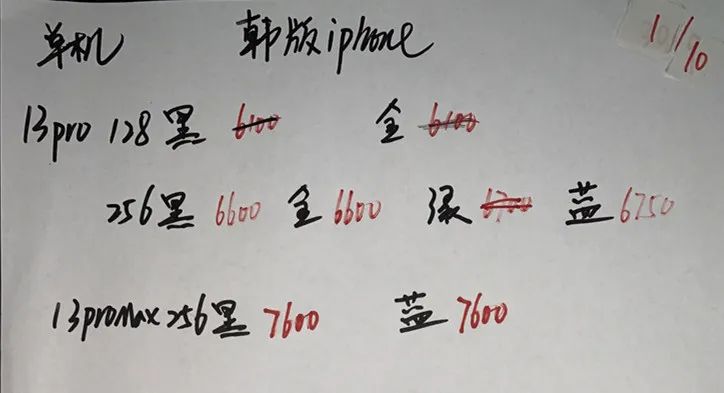 单机 韩版iphone 1/10
13pro 128黑 6100 金 6100
256黑 6600 金 6600 绿 6700 蓝 6750
13promax 256黑 7600 蓝 7600